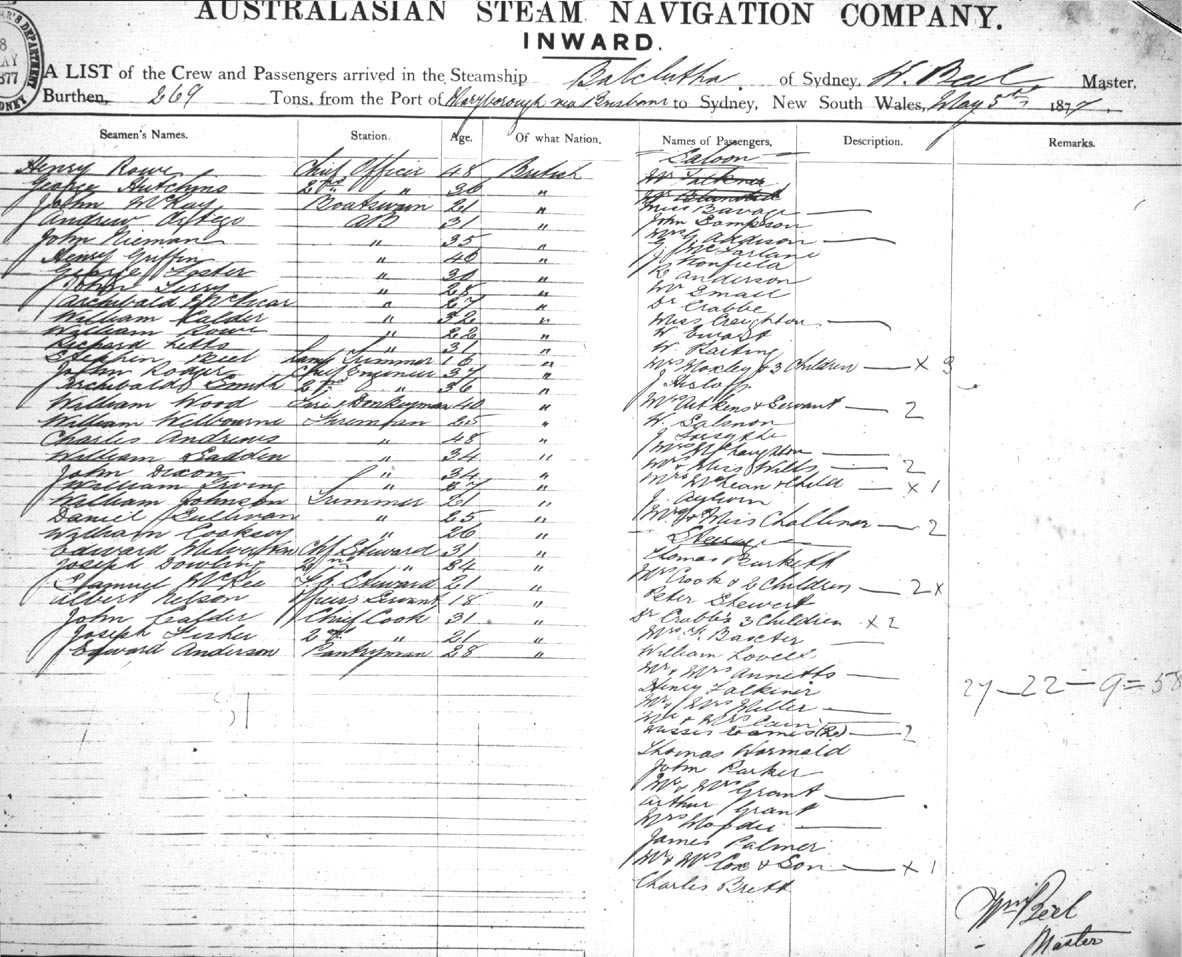 AUSTRALASIAN STEAM NAVIGATION COMPANY.
INWARD.
A LIST of the Crew and Passengers arrived in the Steamship Balclutha of Sydney, W. Beel Master,
Burthen, 269 Tons, from the Port of Maryborough via Brisbane to Sydney, New South Wales, May 5th 1877
Seamen's Names. Station. Age. Of what Nation. Names of Passengers, Description. Remarks.
Henry Rowe Chief Officer 48 British
George Hutchins 2nd " 30 "
John McKay Boatswain 21 "
Andrew AB 31 "
John Nieman " 35 "
Henry Griffin " 40 "
George Foster " 30 "
John Terry " 28 "
Archibald McVicar " 27 "
William Calder " 32 "
William Rowe " 22 "
Richard Letts " 31 "
Stephen Lamp Trimmer 16 "
John Rodger Chief Engineer 37 "
Archibald Smith 2nd " 36 "
William Wood Donkeyman 40 "
William Welbourne Fireman 25 "
Charles Andrews " 48 "
William Ladden " 34 "
John Dixon " 34 "
William Irving "
William Johnson Trimmer 21 "
Daniel Sullivan " 25 "
William Cooksey " 26 "
Edward Chf Steward 31 "
Joseph Dowling 2nd " 34 "
Samuel McKee Steward 21 "
Albert Nelson Officers Servant 18 "
John Calder Chief Cook 31 "
Joseph Fisher 2nd " 21 "
Edward Anderson Pantryman 28 "
31
Saloon
Miss Savage
John Sampson
Mrs G Addison
G McFarlane
J
R Anderson
Wm Small
Dr Crabbe
Miss Creighton
W Ewart
W Rarting
Mrs Moxley & 3 Children x 3
J Hislop
Mrs Aitkens & Servant 2
W Salmon
J Forsythe
Mrs McCraydon
Mrs & Miss Wills 2
Mrs McLean & Child x 1
J Aylwin
Mrs & Miss Challiner 2
Steerage
Thomas Burkett
Mrs Crook & 2 Children 2 x
Peter Stewert
Dr Crabbe's 3 Children x 2
Mrs Baxter
William Lovell
Mr & Mrs Annetts
Henry Falkiner
Mr & Mrs Miller
Mr & Mrs Cain
Misses (2) 2
Thomas Wormald
John Parker
Mr & Mrs Grant
Arthur Grant
Mrs
James Palmer
Mr & Mrs Cox & Son x 1
Charles Brett
27 – 22 – 9 = 58
Wm Beel
Master